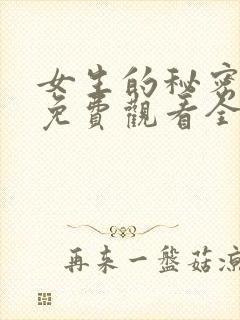 女生的秘密
免費觀看全
再来一盤菇凉